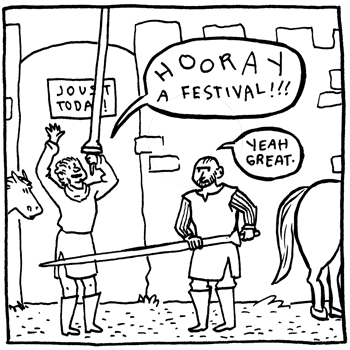 JOUST
TODAY!
HOORAY
A FESTIVAL!!!
YEAH
GREAT.